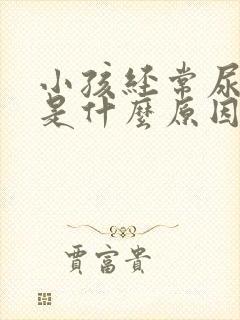 小孩経常尿
是什麼原因
賈富貴